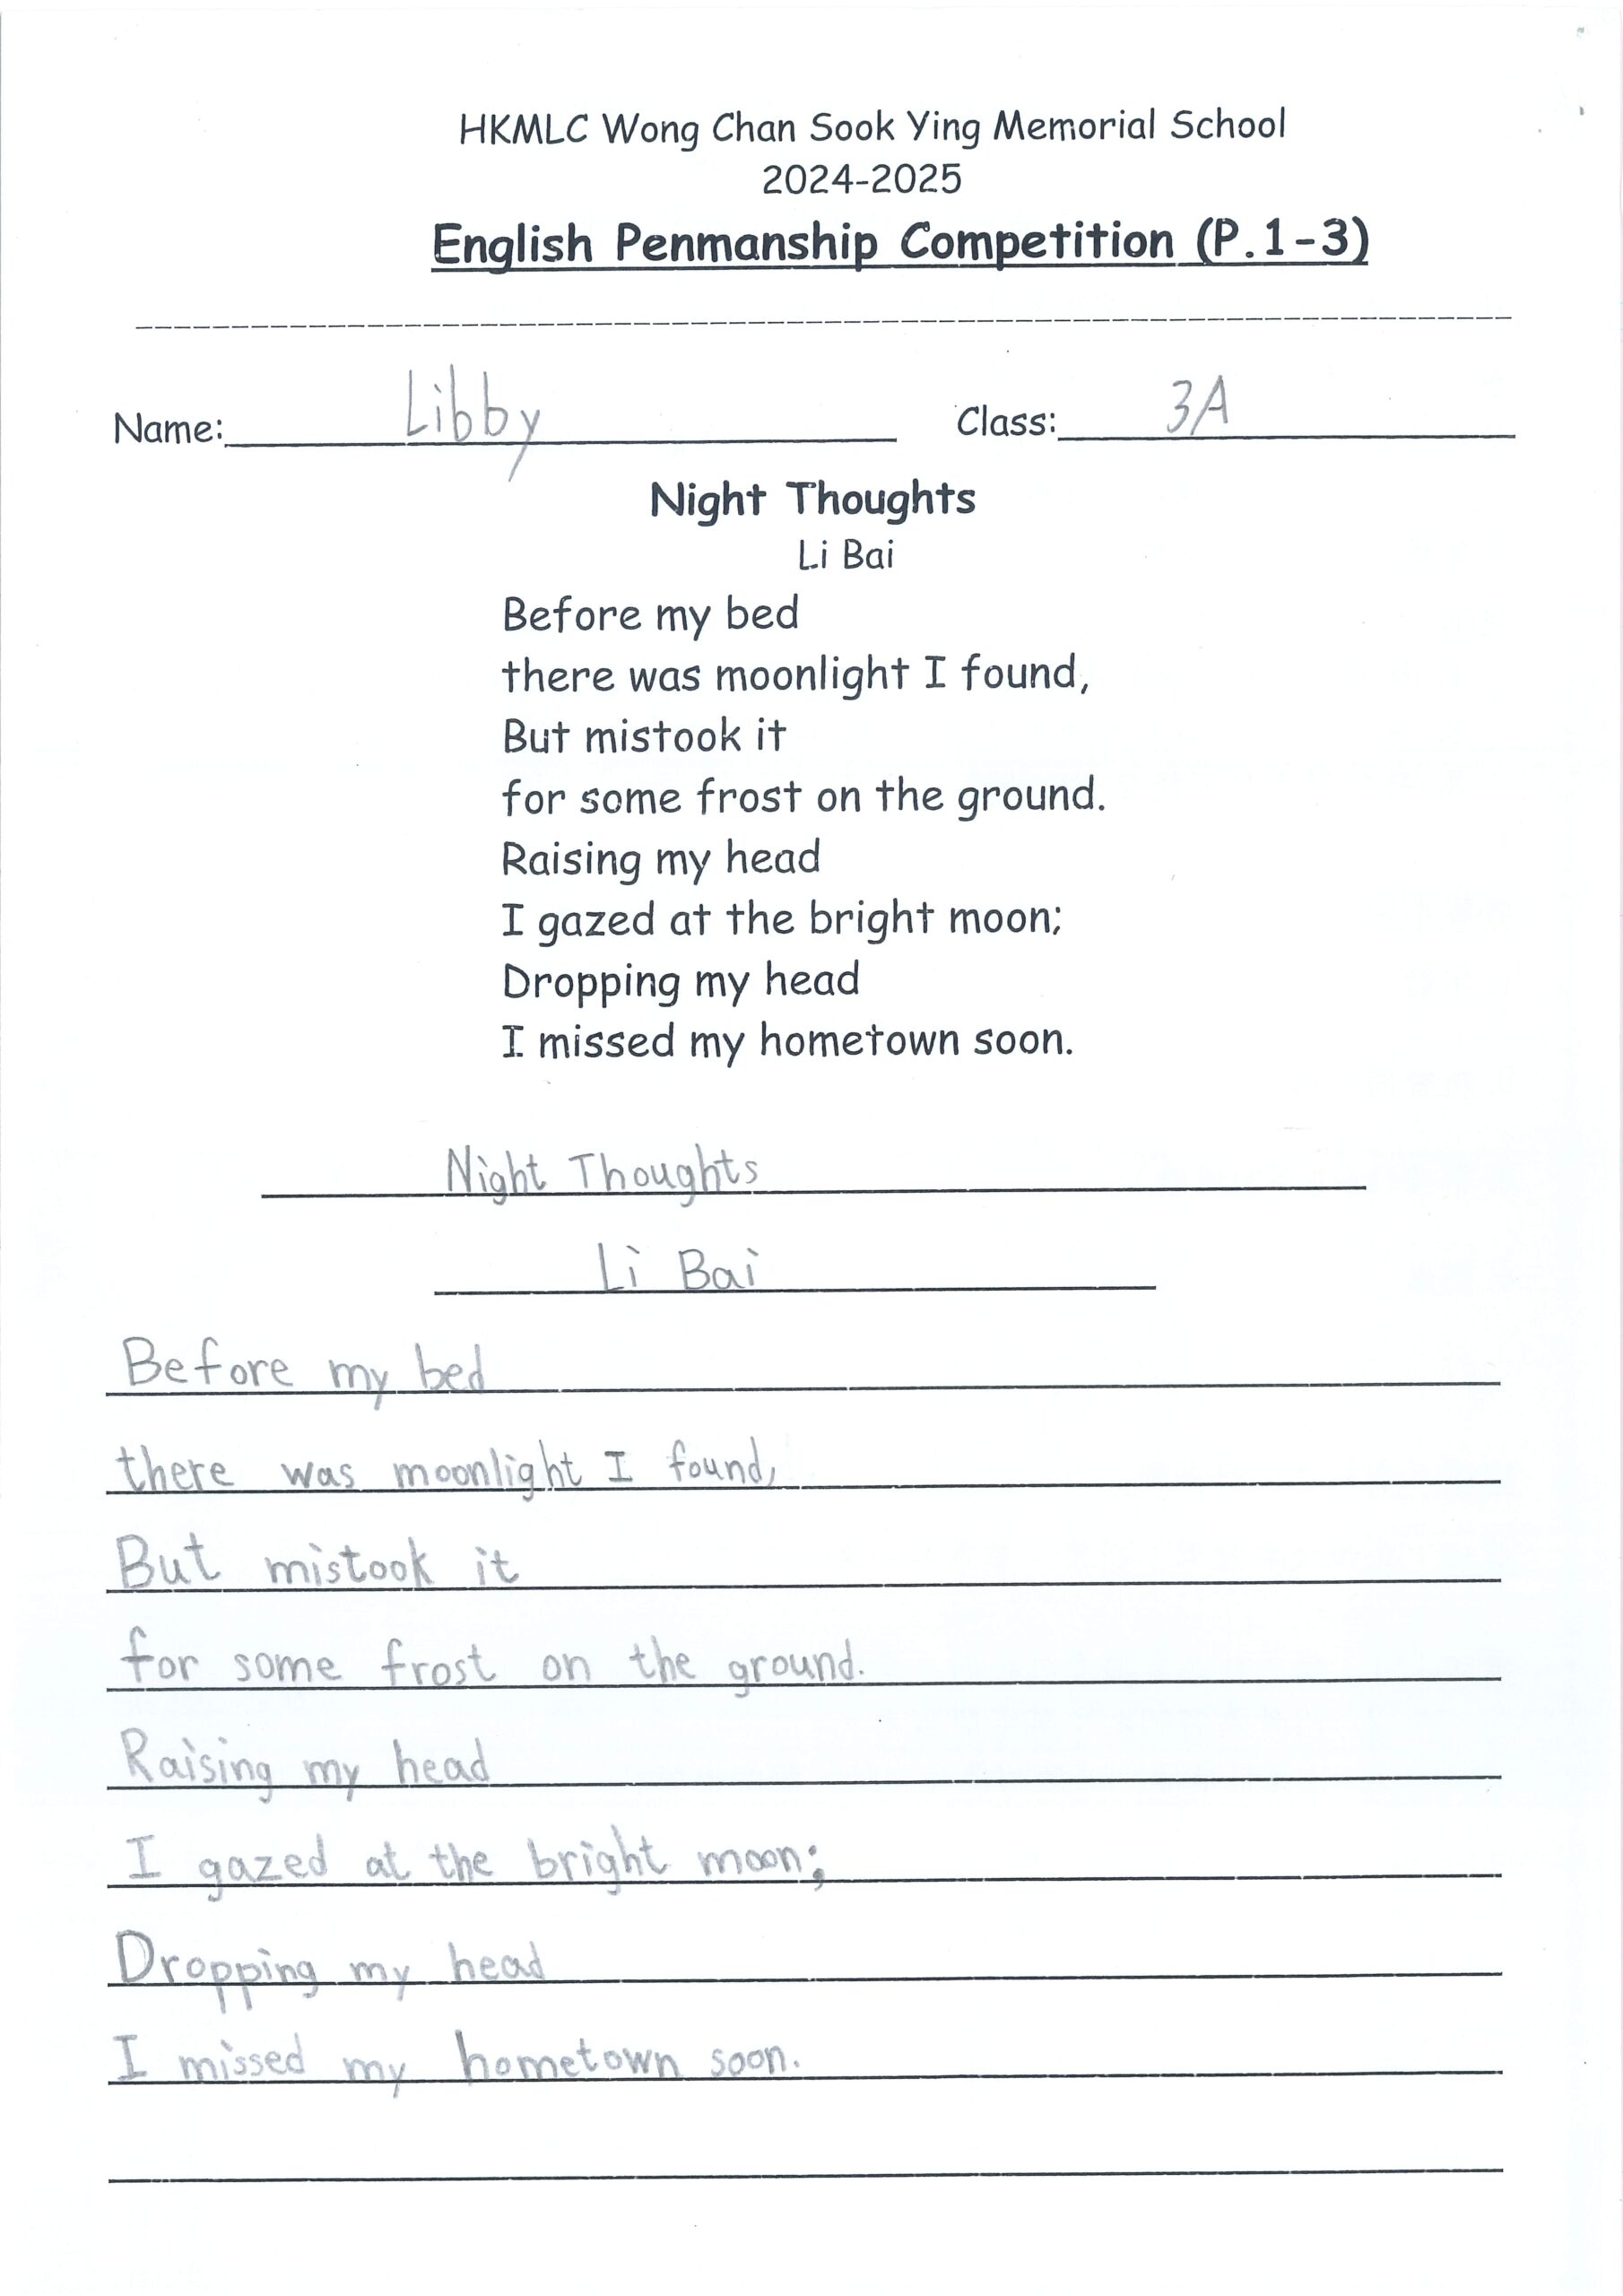 HKMLC Wong Chan Sook Ying Memorial School
2024-2025
English Penmanship Competition (P.1-3)
Name: Libby Class: 3A
Night Thoughts
Li Bai
Before my bed
there was moonlight I found,
But mistook it
for some frost on the ground.
Raising my head
I gazed at the bright moon;
Dropping my head
I missed my hometown soon.
Night Thoughts
Li Bai
Before my bed
there was moonlight I found,
But mistook it
for some frost on the ground.
Raising my head
I gazed at the bright moon;
Dropping my head
I missed my hometown soon.